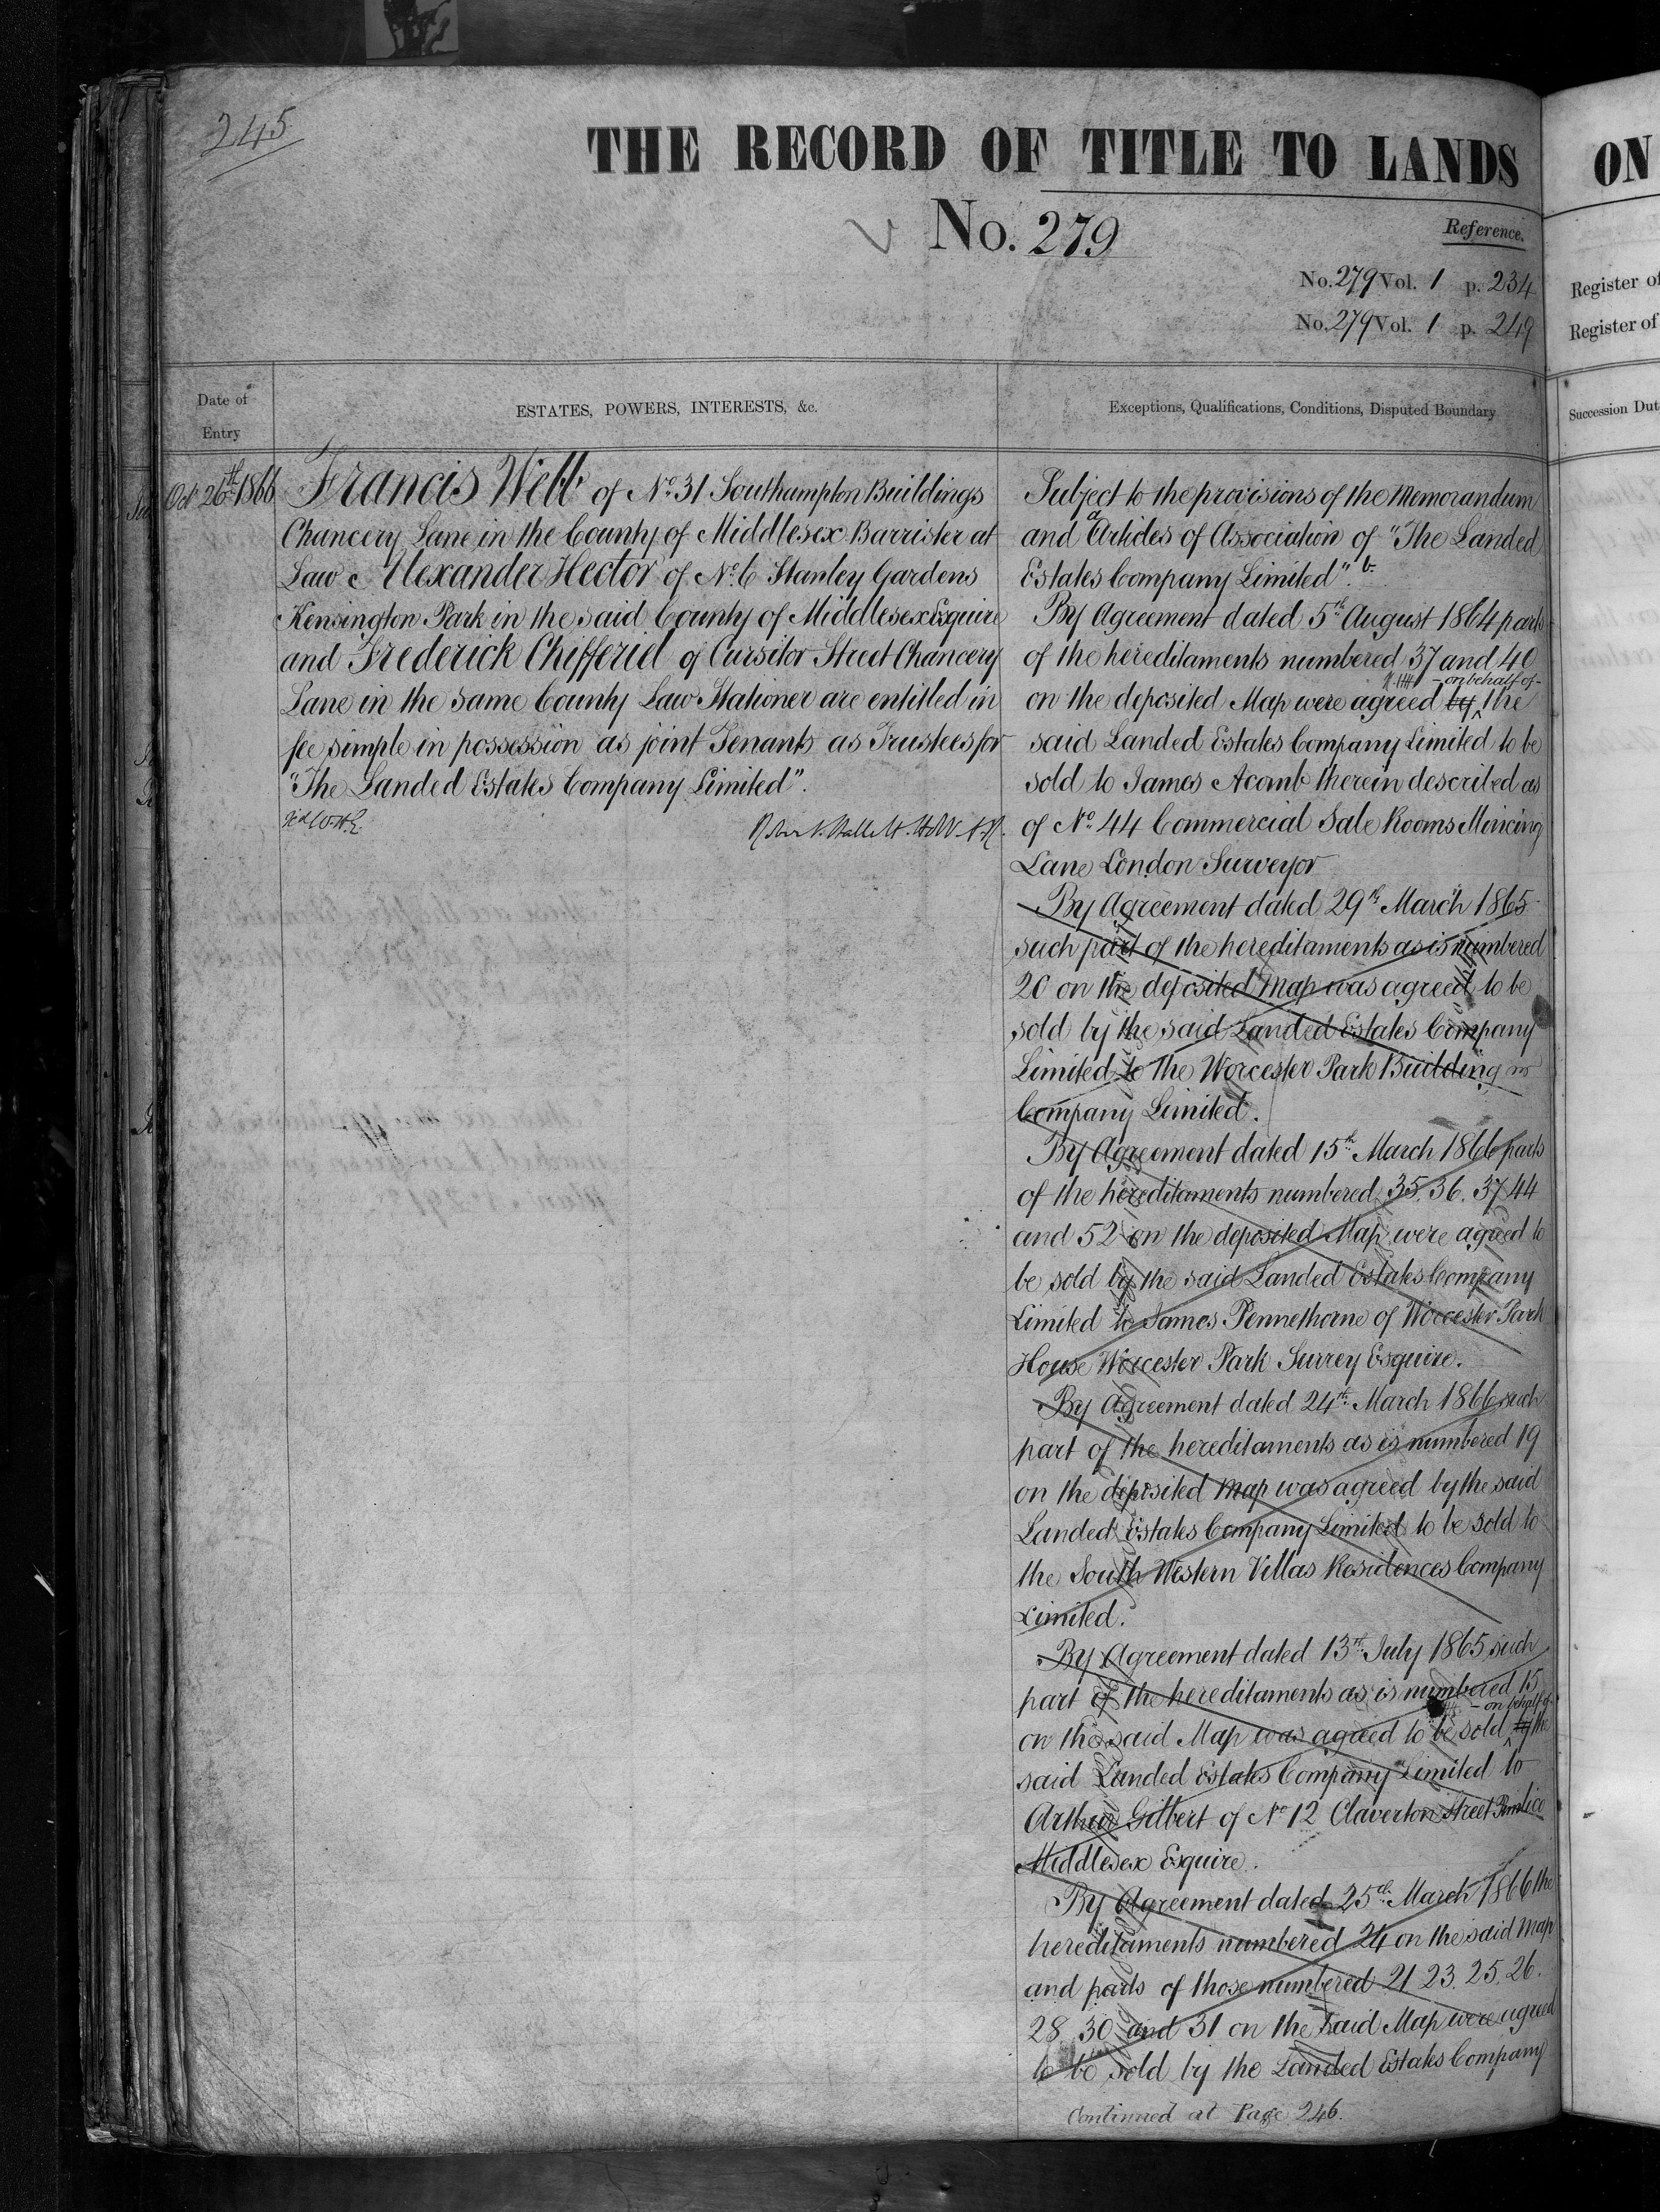 245
THE RECORD OF TITLE TO LANDS
No. 279
Reference.
No. 279 Vol. 1 p. 234
No. 279 Vol. 1 p. 249
Date of
Entry
ESTATES, POWERS, INTERESTS, &c.
Exceptions, Qualifications, Conditions, Disputed Boundary
Oct 26th 1866
Francis Webb of No. 31 Southampton Buildings
Chancery Lane in the County of Middlesex Barrister at
Law Alexander Hector of No. 6 Stanley Gardens
Kensington Park in the said County of Middlesex Esquire
and Frederick Chifferiel of Cursitor Street Chancery
Lane in the same County Law Stationer are entitled in
fee simple in possession as joint Tenants as Trustees for
"The Landed Estates Company Limited".
Subject to the provisions of the Memorandum
and Articles of Association of "The Landed
Estates Company Limited".
By Agreement dated 5th August 1864 parts
of the hereditaments numbered 37 and 40
- on behalf of -
on the deposited Map were agreed by the
said Landed Estates Company Limited to be
sold to James Acomb therein described as
of No. 44 Commercial Sale Rooms Mincing
Lane London Surveyor
By Agreement dated 29th March 1865
such part of the hereditaments as is numbered
20 on the deposited Map was agreed to be
sold by the said Landed Estates Company
Limited to The Worcester Park Building
Company Limited.
By Agreement dated 15th March 1866 parts
of the hereditaments numbered 35. 36. 37 44
and 52 on the deposited Map were agreed to
be sold by the said Landed Estates Company
Limited to James Pennethorne of Worcester Park
House Worcester Park Surrey Esquire.
By Agreement dated 24th March 1866 such
part of the hereditaments as is numbered 19
on the deposited Map was agreed by the said
Landed Estates Company Limited to be sold to
the South Western Villas Residences Company
Limited.
By Agreement dated 13th July 1865 such
part of the hereditaments as is numbered 15
- on behalf of -
on the said Map was agreed to be sold by the
said Landed Estates Company Limited to
Arthur Gilbert of No 12 Claverton Street Pimlico
Middlesex Esquire.
By Agreement dated 25th March 1866 the
hereditaments numbered 24 on the said Map
and parts of those numbered 21 23. 25. 26.
28. 30 and 31 on the said Map were agreed
to be sold by the Landed Estates Company
Continued at Page 246.
ON
Register of
Register of
Succession Dut